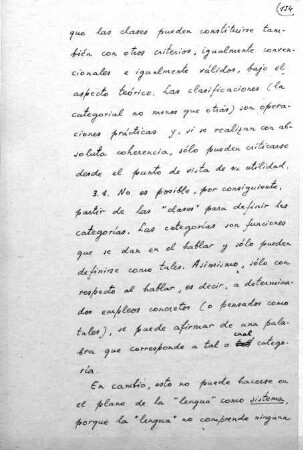 134
que las clases pueden constituirse tam-
bién con otros criterios, igualmente conven-
cionales e igualmente válidos, bajo el
aspecto teórico. Las clasificaciones (la
categorial no menos que otras) son opera-
ciones prácticas y, si se realizan con ab-
soluta coherencia, sólo pueden criticarse
desde el punto de vista de su utilidad.
3.1. No es posible, por consiguiente,
partir de las "clases" para definir las
categorías. Las categorías son funciones
que se dan en el hablar y sólo pueden
definirse como tales. Asimismo, sólo con
respecto al hablar, es decir, a determina-
dos empleos concretos (o pensados como
tales), se puede afirmar de una pala-
bra que corresponde a tal o cual catego-
ría.
En cambio, esto no puede hacerse en
el plano de la "lengua" como sistema,
porque la "lengua" no comprende ninguna